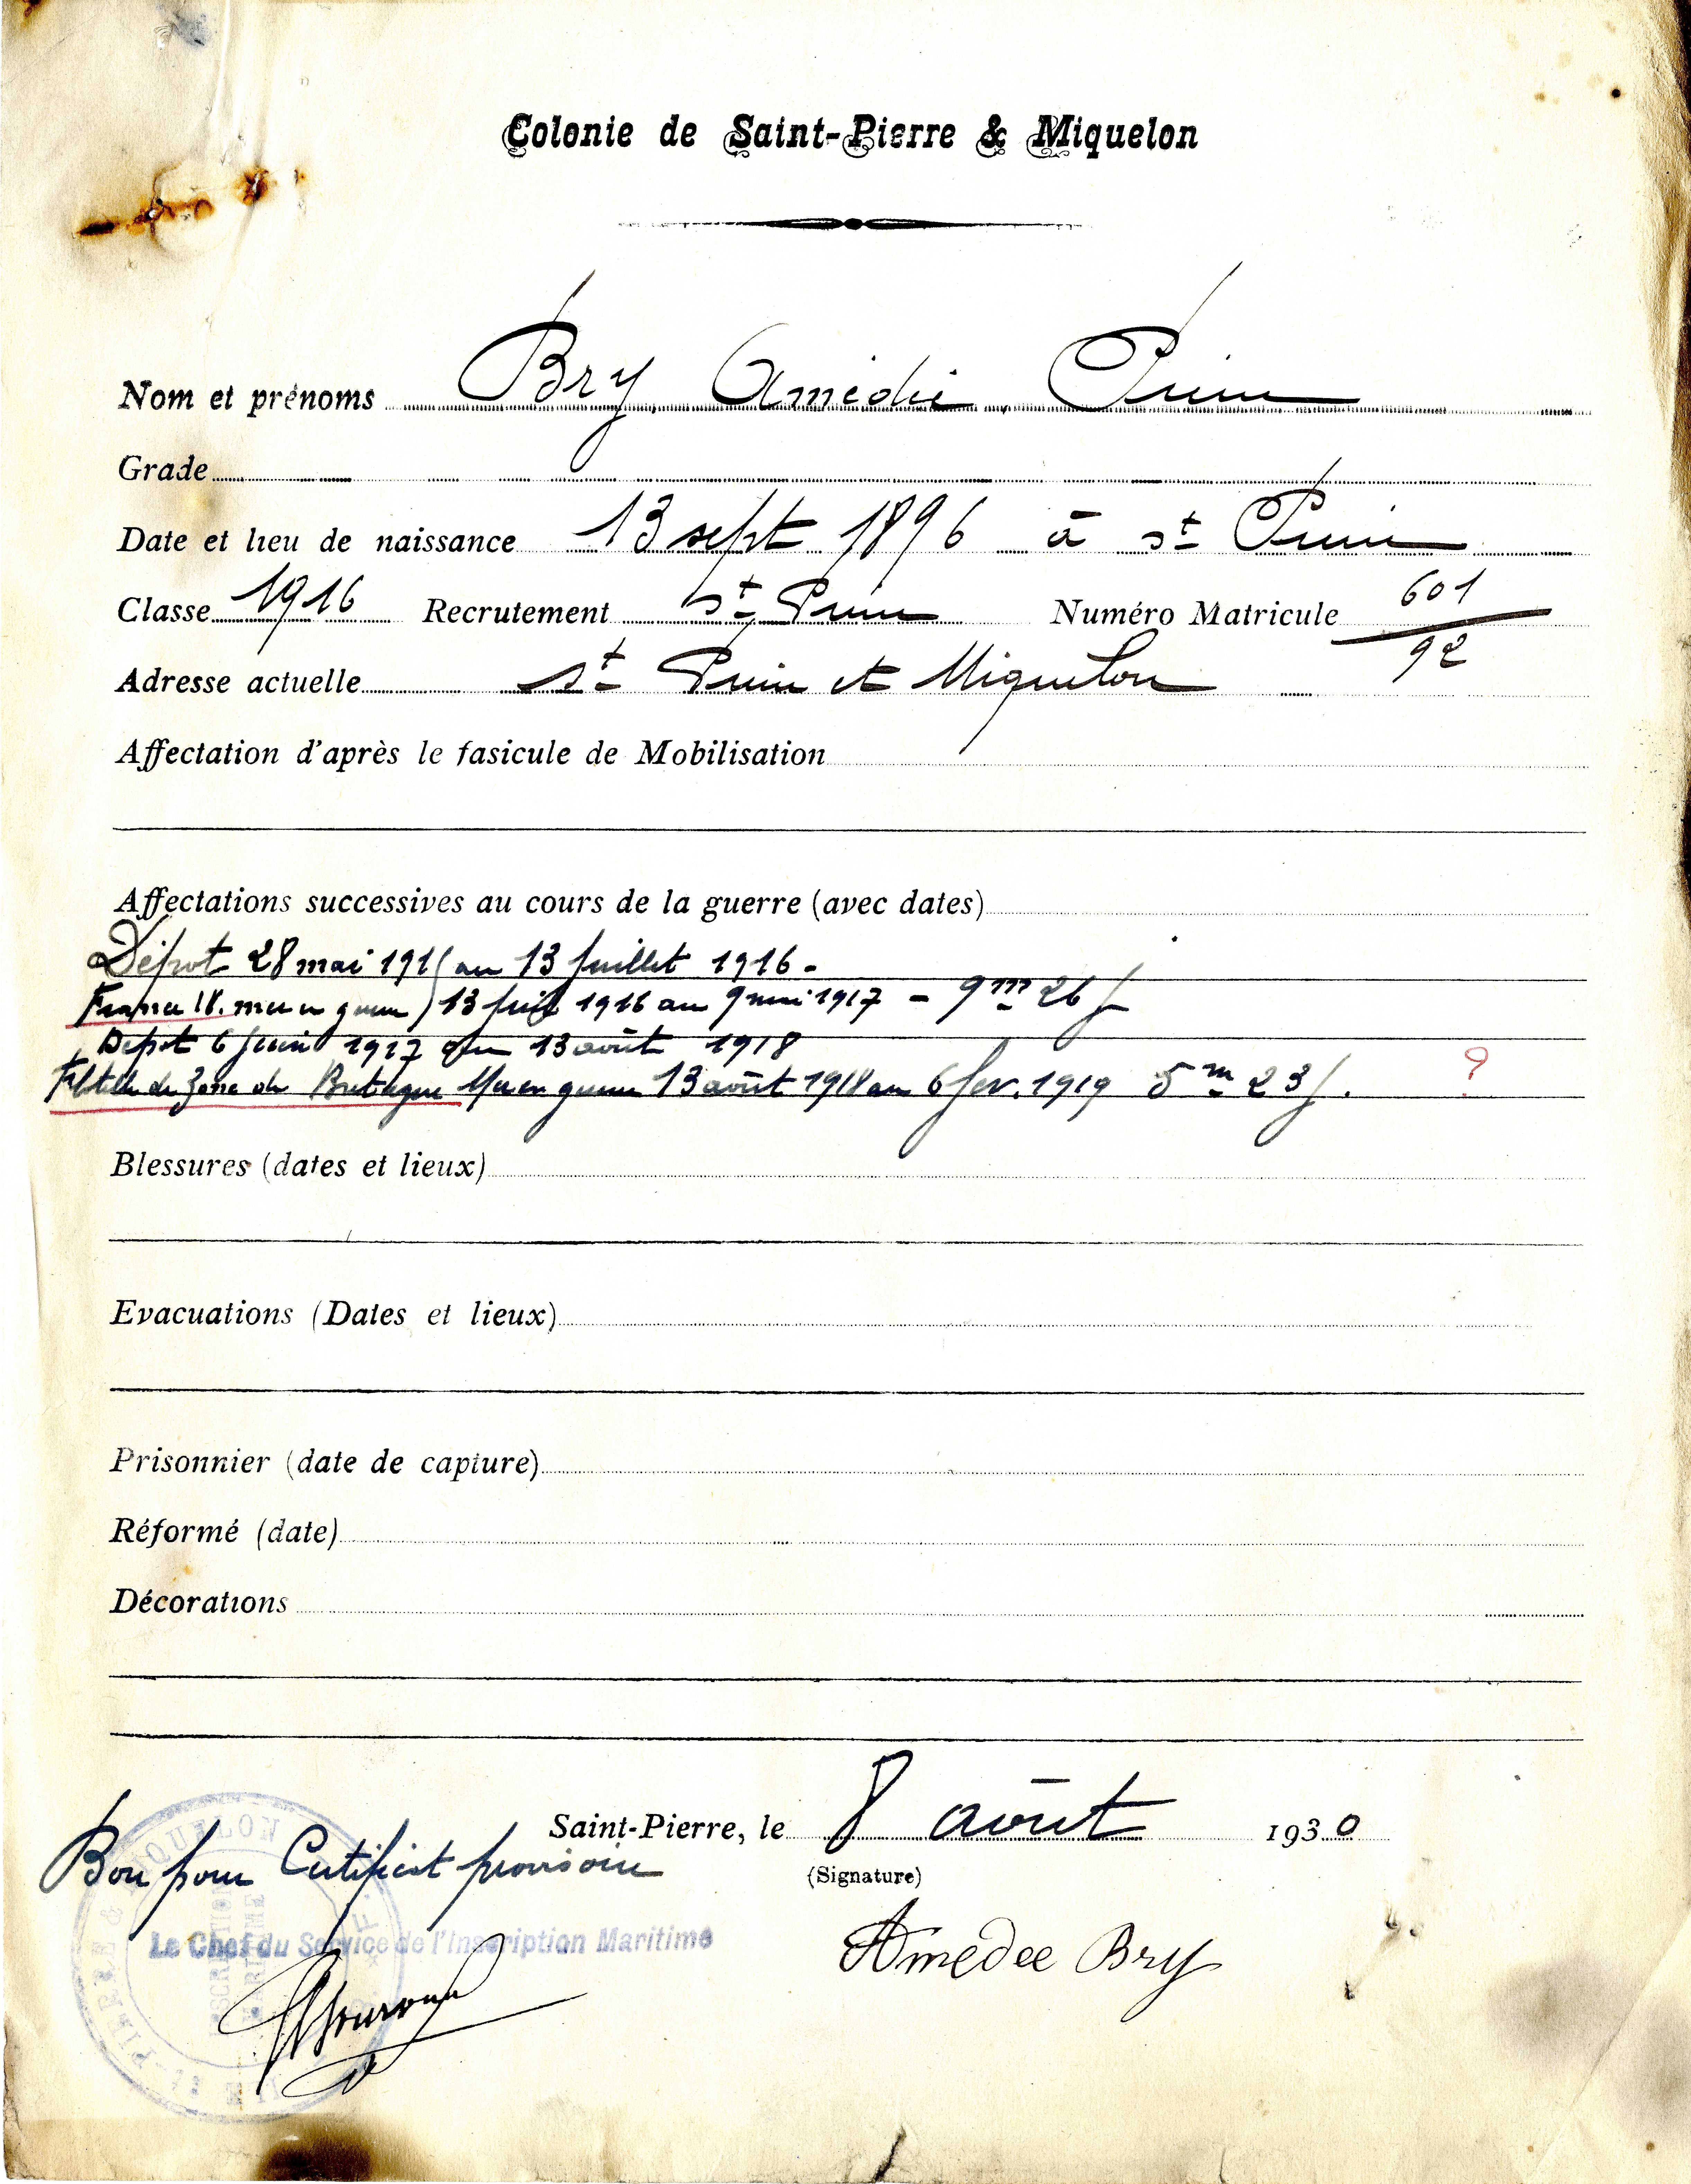 Colonie de Saint-Pierre & Miquelon
Nom et prénoms Bry Amédée Pierre
Grade
Date et lieu de naissance 13 sept 1896 à St Pierre
Classe 1916 Recrutement St Pierre Numéro Matricule 601/92
Adresse actuelle St Pierre et Miquelon
Affectation d'après le fasicule de Mobilisation
Affectations successives au cours de la guerre (avec dates)
Dépot 28 mai 1916 au 13 Juillet 1916 -
mer en guerre) 13 Juil 1916 au 9 mai 1917 - 9 m 26 j
Depot 6 Juin 1917 au 13 août 1918
de Zone de Bretagne Mer en guerre 13 août 1918 au 6 fev. 1919 5 m 23 j. ?
Blessures (dates et lieux)
Evacuations (Dates et lieux)
Prisonnier (date de capture)
Réformé (date)
Décorations
Saint-Pierre, le 8 août 1930
Bon pour Certificat provisoire
(Signature)
Le Chef du Service de l'Inscription Maritime
Amedee Bry